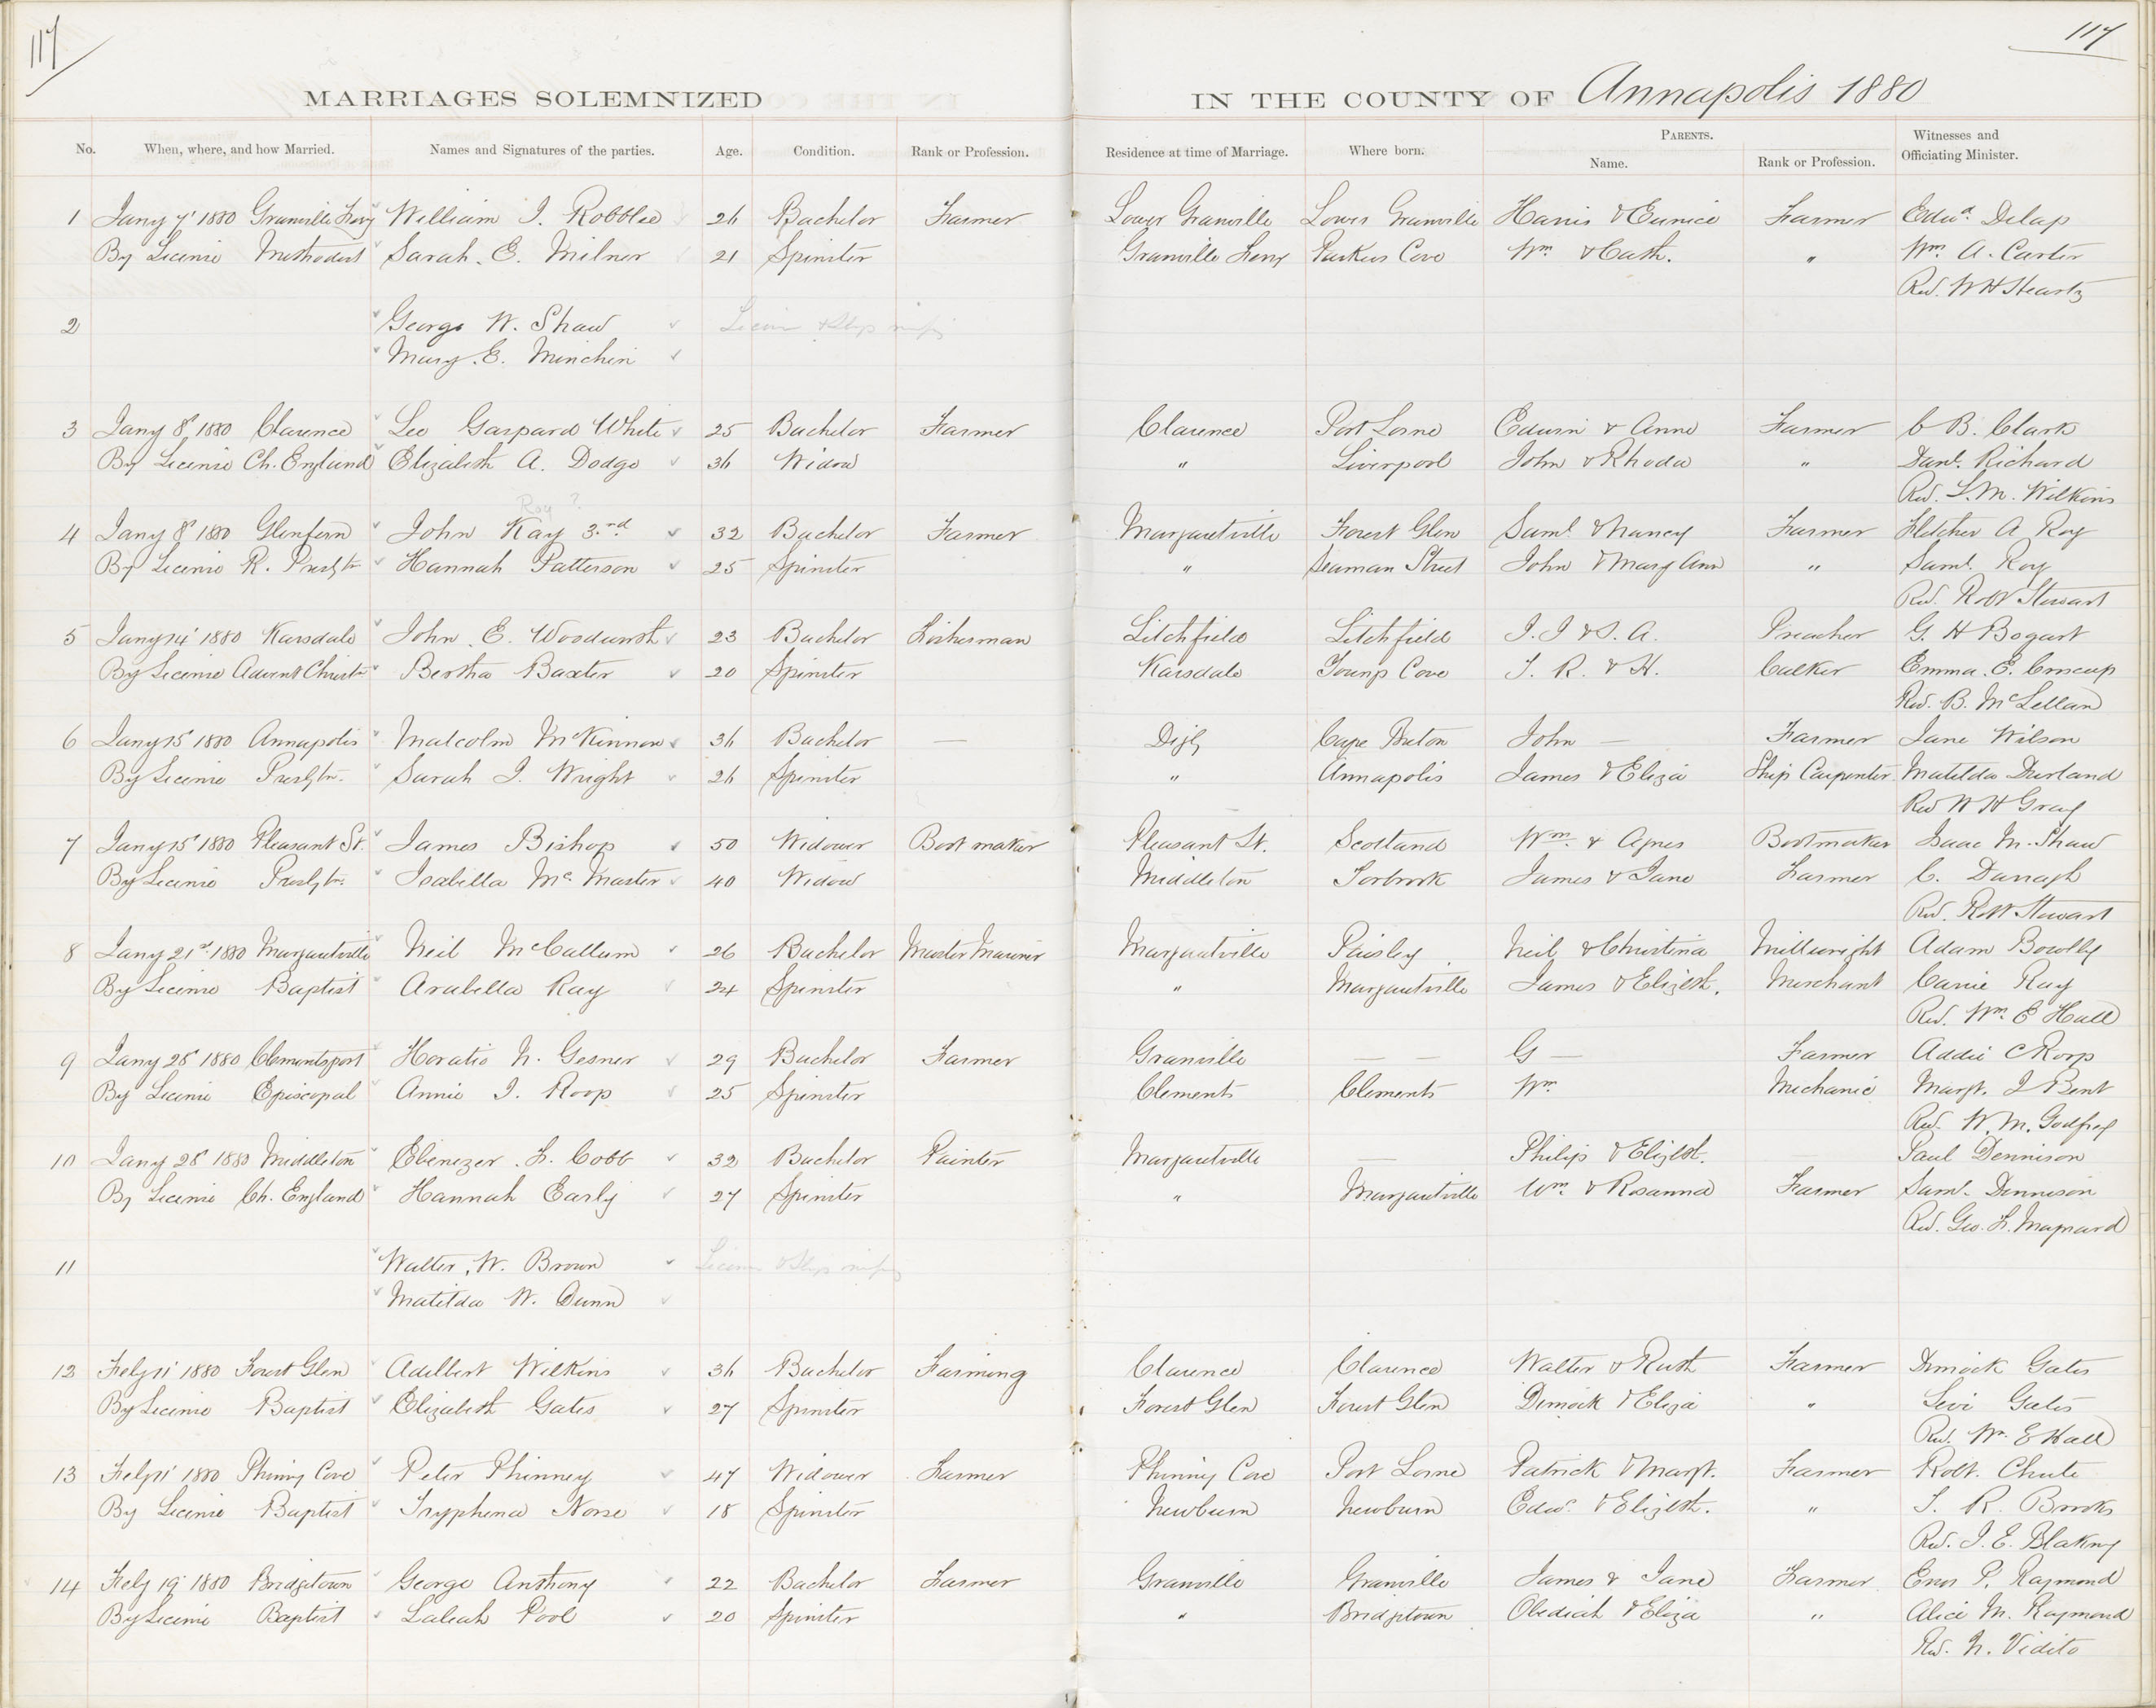 117
117
MARRIAGES SOLEMNIZED IN THE COUNTY OF Annapolis 1880
No. When, where, and how Married. Names and Signatures of the parties. Age. Condition. Rank or Profession. Residence at time of Marriage. Where born. PARENTS. Name. Rank or Profession. Witnesses and Officiating Minister.
1 Jany 7' 1880 Granville Ferry William J. Robblee 26 Bachelor Farmer Lower Granville Lower Granville Harris & Eunice Farmer Edwd. Delap
By Licence Methodist Sarah. E. Milner 21 Spinster Granville Ferry Parkers Cove Wm. & Cath. " Wm. A. Carter
Rev. W H Heartz
2 George W. Shaw Licence & Slip missing
Mary. E. Minchin
3 Jany 8' 1880 Clarence Leo Gaspard White 25 Bachelor Farmer Clarence Port Lorne Edwin & Anne Farmer C B. Clark
By Licence Ch. England Elizabeth A. Dodge 36 Widow " Liverpool John & Rhoda " Danl. Richard
Rev. L. M. Wilkins
Roy ?
4 Jany 8' 1880 Glenfern John Kay 3rd 32 Bachelor Farmer Margaretville Forest Glen Saml. & Nancy Farmer Fletcher A Roy
By Licence R. Presbtn Hannah Patterson 25 Spinster " Seaman Street John & Mary Ann " Saml. Roy
Rev. Robt Stewart
5 Jany 14' 1880 Karsdale John. E. Woodworth 23 Bachelor Fisherman Litchfield Litchfield J. J & S. A. Preacher G. H Bogart
By Licence Advent Christn Bertha Baxter 20 Spinster Karsdale Youngs Cove J. R. & H. Calker Emma. E. Croscup
Rev. B. McLellan
6 Jany 15' 1880 Annapolis Malcolm McKinnon 36 Bachelor — Digby Cape Breton John — Farmer Jane Wilson
By Licence Presbtn. Sarah J. Wright 26 Spinster " Annapolis James & Eliza Ship Carpenter Matilda Durland
Rev W H Gray
7 Jany 15' 1880 Pleasant St. James Bishop 50 Widower Bootmaker Pleasant St. Scotland Wm. & Agnes Bootmaker Isaac M. Shaw
By Licence Presbtn. Isabella McMaster 40 Widow Middleton Torbrook James & Jane Farmer C. Darragh
Rev. Robt Stewart
8 Jany 21st 1880 Margaretville Neil McCallum 26 Bachelor Master Mariner Margaretville Paisley Neil & Christina Millwright Adam Bowlby
By Licence Baptist Arabella Ray 24 Spinster " Margaretville James & Elizbth. Merchant Carrie Ray
Rev. Wm. E Hall
9 Jany 28' 1880 Clementsport Horatio N. Gesner 29 Bachelor Farmer Granville — — G — Farmer Addie C Roop
By Licence Episcopal Annie J. Roop 25 Spinster Clements Clements Wm Mechanic Margt. J Bent
Rev. W. M. Godfrey
10 Jany 28' 1880 Middleton Ebenezer. F. Cobb 32 Bachelor Painter Margaretville — Philip & Elizbt. — Paul Dennison
By Licence Ch. England Hannah Early 27 Spinster " Margaretville Wm. & Rosanna Farmer Saml. Dennison
Rev. Geo. F. Maynard
11 Walter. W. Brown Licence & Slip missing
Matilda W. Dunn
12 Feby 11' 1880 Forest Glen Adelbert Wilkins 36 Bachelor Farming Clarence Clarence Walter & Ruth Farmer Dimock Gates
By Licence Baptist Elizabeth Gates 27 Spinster Forest Glen Forest Glen Dimock & Eliza " Levi Gates
Rev. Wm. E Hall
13 Feby 11' 1880 Phinny Cove Peter Phinney 47 Widower Farmer Phinny Cove Port Lorne Patrick & Margt. Farmer Robt. Chute
By Licence Baptist Tryphena Norse 18 Spinster Newburn Newburn Edwd. & Elizbth. " J. R. Brooks
Rev. J. E. Blakny
14 Feby 19' 1880 Bridgetown George Anthony 22 Bachelor Farmer Granville Granville James & Jane Farmer Enos P. Raymond
By Licence Baptist Laleah Pool 20 Spinster " Bridgetown Obediah & Eliza " Alice M. Raymond
Rev. N. Vidito